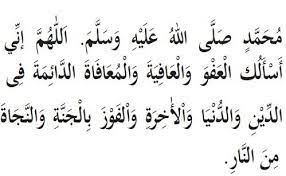 مُحَمَّدٍ صَلَّى اللهُ عَلَيْهِ وَسَلَّمَ. اَللّٰهُمَّ إِنِّي
أَسْأَلُكَ الْعَفْوَ وَالْعَافِيَةَ وَالْمُعَافَاةَ الدَّائِمَةَ فِى
الدِّيْنِ وَالدُّنْيَا وَاْلاٰخِرَةِ وَالْفَوْزَ بِالْجَنَّةِ وَالنَّجَاةَ
مِنَ النَّارِ.